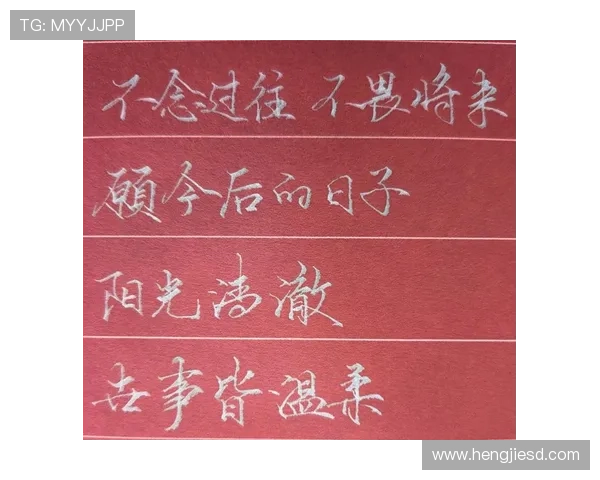 TG: MYYJJPP
不念过往 不畏将来
願今后的日子
阳光清澈
世事皆温柔
www.hengjiesd.com